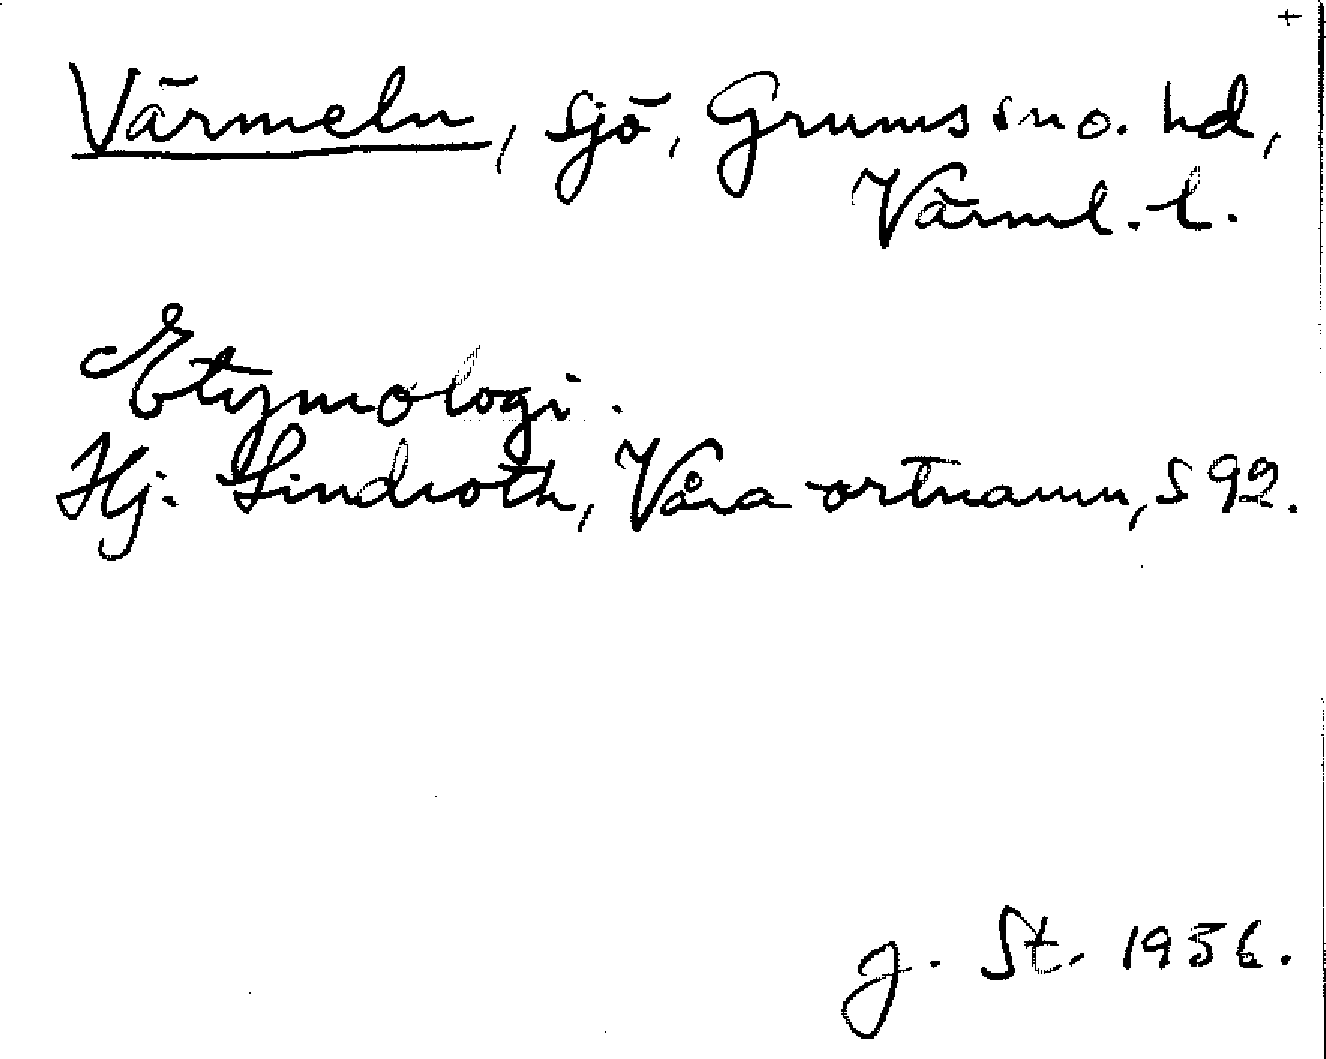 +
Värmeln, sjö, Grums sn o. hd,
Värml. l.
Etymologi.
Hj. Lindroth, Våra ortnamn, s 92.
g. St. 1956.